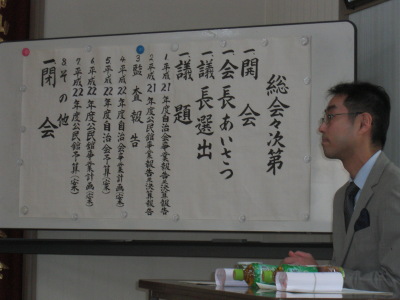 総会々次第
一開会
一会長あいさつ
一議長選出
一議題
1平成21年度自治会事業報告と決算報告
2平成21年度公民館事業報告と決算報告
3監査報告
4平成22年度自治会事業計画(案)
5平成22年度自治会予算(案)
6平成22年度公民館事業計画(案)
7平成22年度公民館予算(案)
8その他
一閉会